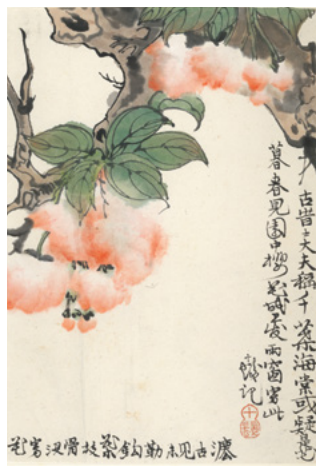 古昔士大夫稱千葉海棠或疑是
暮春見園中櫻花愛雨窗寫此
記
花寫沒骨枝葉鈎勒未見古灋